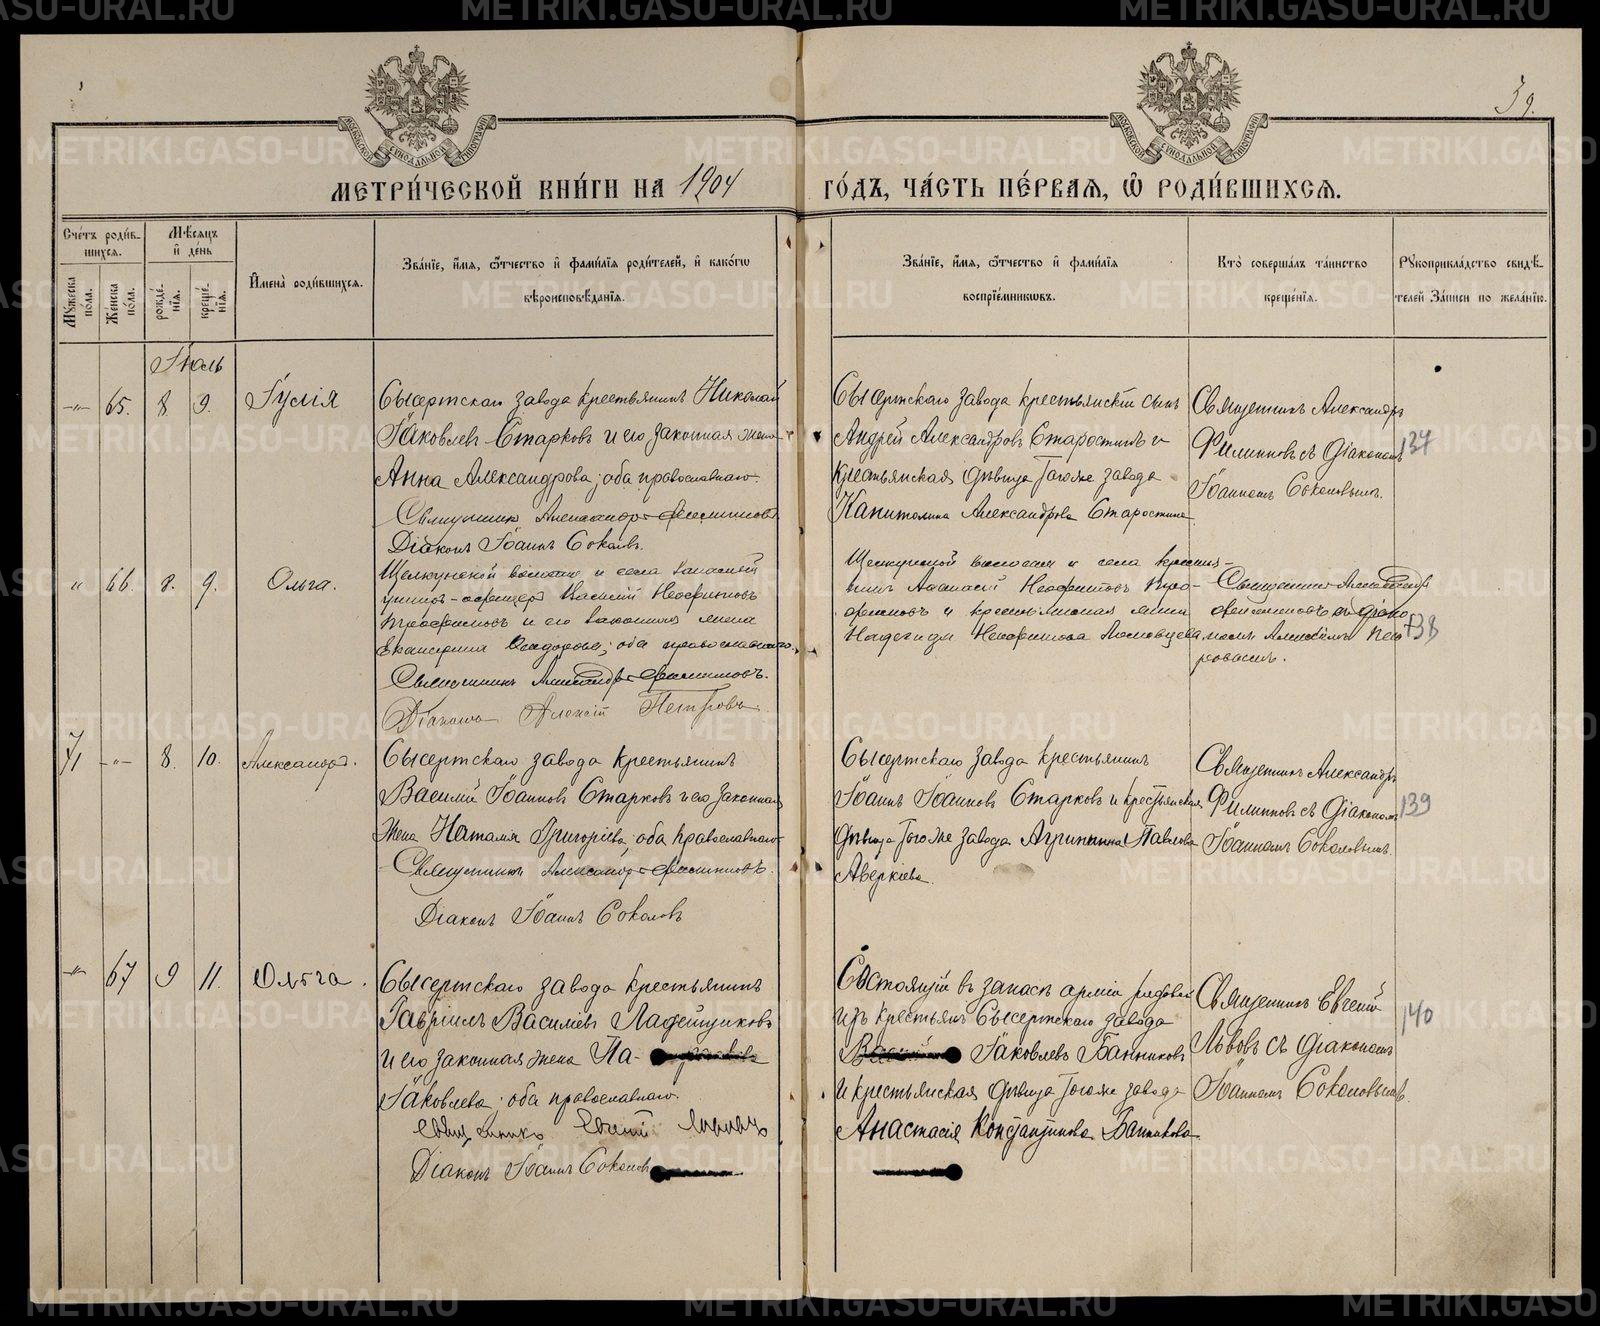 METRIKI.GASO-URAL.RU
39.
МОСКОВСКОЙ СѴНОДАЛЬНОЙ ТИПОГРАФІИ
МОСКОВСКОЙ СѴНОДАЛЬНОЙ ТИПОГРАФІИ
МЕТРИ́ЧЕСКОЙ КНИ́ГИ НА 1904
ГО́ДЪ, ЧА́СТЬ ПЕ́РВАЯ, Ѡ РОДИ́ВШИХСЯ.
Сче́тъ роди́в-
шихся.
Мꙋ́жеска по́ла.
Же́нска по́ла.
Мѣ́сяцъ
и҆ де́нь
рожде́нїя.
креще́нїя.
И҆мена̀ роди́вшихся.
Зва́нїе, и҆́мя, ѻ҆́тчество и҆ фами́лїя роди́телей, и҆ како́гѡ
вѣроисповѣ́данїя.
Зва́нїе, и҆́мя, ѻ҆́тчество и҆ фами́лїя
воспрїе́мниковъ.
Кто̀ соверша́лъ та́инство
креще́нїя.
Рꙋкоприкла́дство свидѣ́-
телей за́писи по жела́нїю.
Іюль
-"- 65. 8 9. Іулія
Сысертскаго завода крестьянинъ Николай
Іаковлевъ Старковъ и его законная жена
Анна Александрова; оба православнаго.
Священникъ Александръ Филипповъ
Діаконъ Іоаннъ Соколовъ.
Сысертскаго завода крестьянскій сынъ
Андрей Александровъ Старостинъ и
крестьянская дѣвица того же завода
Капитолина Александрова Старостина
Священникъ Александръ
Филипповъ съ діакономъ
Іоанномъ Соколовымъ.
137
" 66. 8. 9. Ольга.
Щелкунской волости и села запасный
унтеръ-офицеръ Василій Неофитовъ
Трофимовъ и его законная жена
Екатерина; оба православнаго.
Священникъ Александръ Филипповъ.
Діаконъ Алексій Петровъ.
Щелкунской волости и села крестья-
нинъ Аѳанасій Неофитовъ Тро-
фимовъ и крестьянская жена
Надежда Неофитова
Священникъ Александръ
Филипповъ съ діако-
номъ Алексіемъ Пет-
ровымъ.
138
71 -"- 8. 10. Александръ.
Сысертскаго завода крестьянинъ
Василій Іоанновъ Старковъ и его законная
жена Наталія Григоріева; оба православнаго
Священникъ Александръ Филипповъ.
Діаконъ Іоаннъ Соколовъ
Сысертскаго завода крестьянинъ
Іоаннъ Іоанновъ Старковъ и крестьянская
дѣвица того же завода Агрипина Павлова
Аверкіева.
Священникъ Александръ
Филипповъ съ діакономъ
Іоанномъ Соколовымъ.
139
-"- 67 9 11. Ольга.
Сысертскаго завода крестьянинъ
Гавріилъ Василіевъ Ладейщиковъ
и его законная жена Па-
Іаковлева; оба православнаго.
Священникъ Евгеній Львовъ
Діаконъ Іоаннъ Соколовъ
Состоящій въ запасѣ арміи рядовой
изъ крестьянъ Сысертскаго завода
Іаковлевъ Банниковъ
и крестьянская дѣвица того же завода
Анастасія Константинова Банникова.
Священникъ Евгеній
Львовъ съ діакономъ
Іоанномъ Соколовымъ.
140